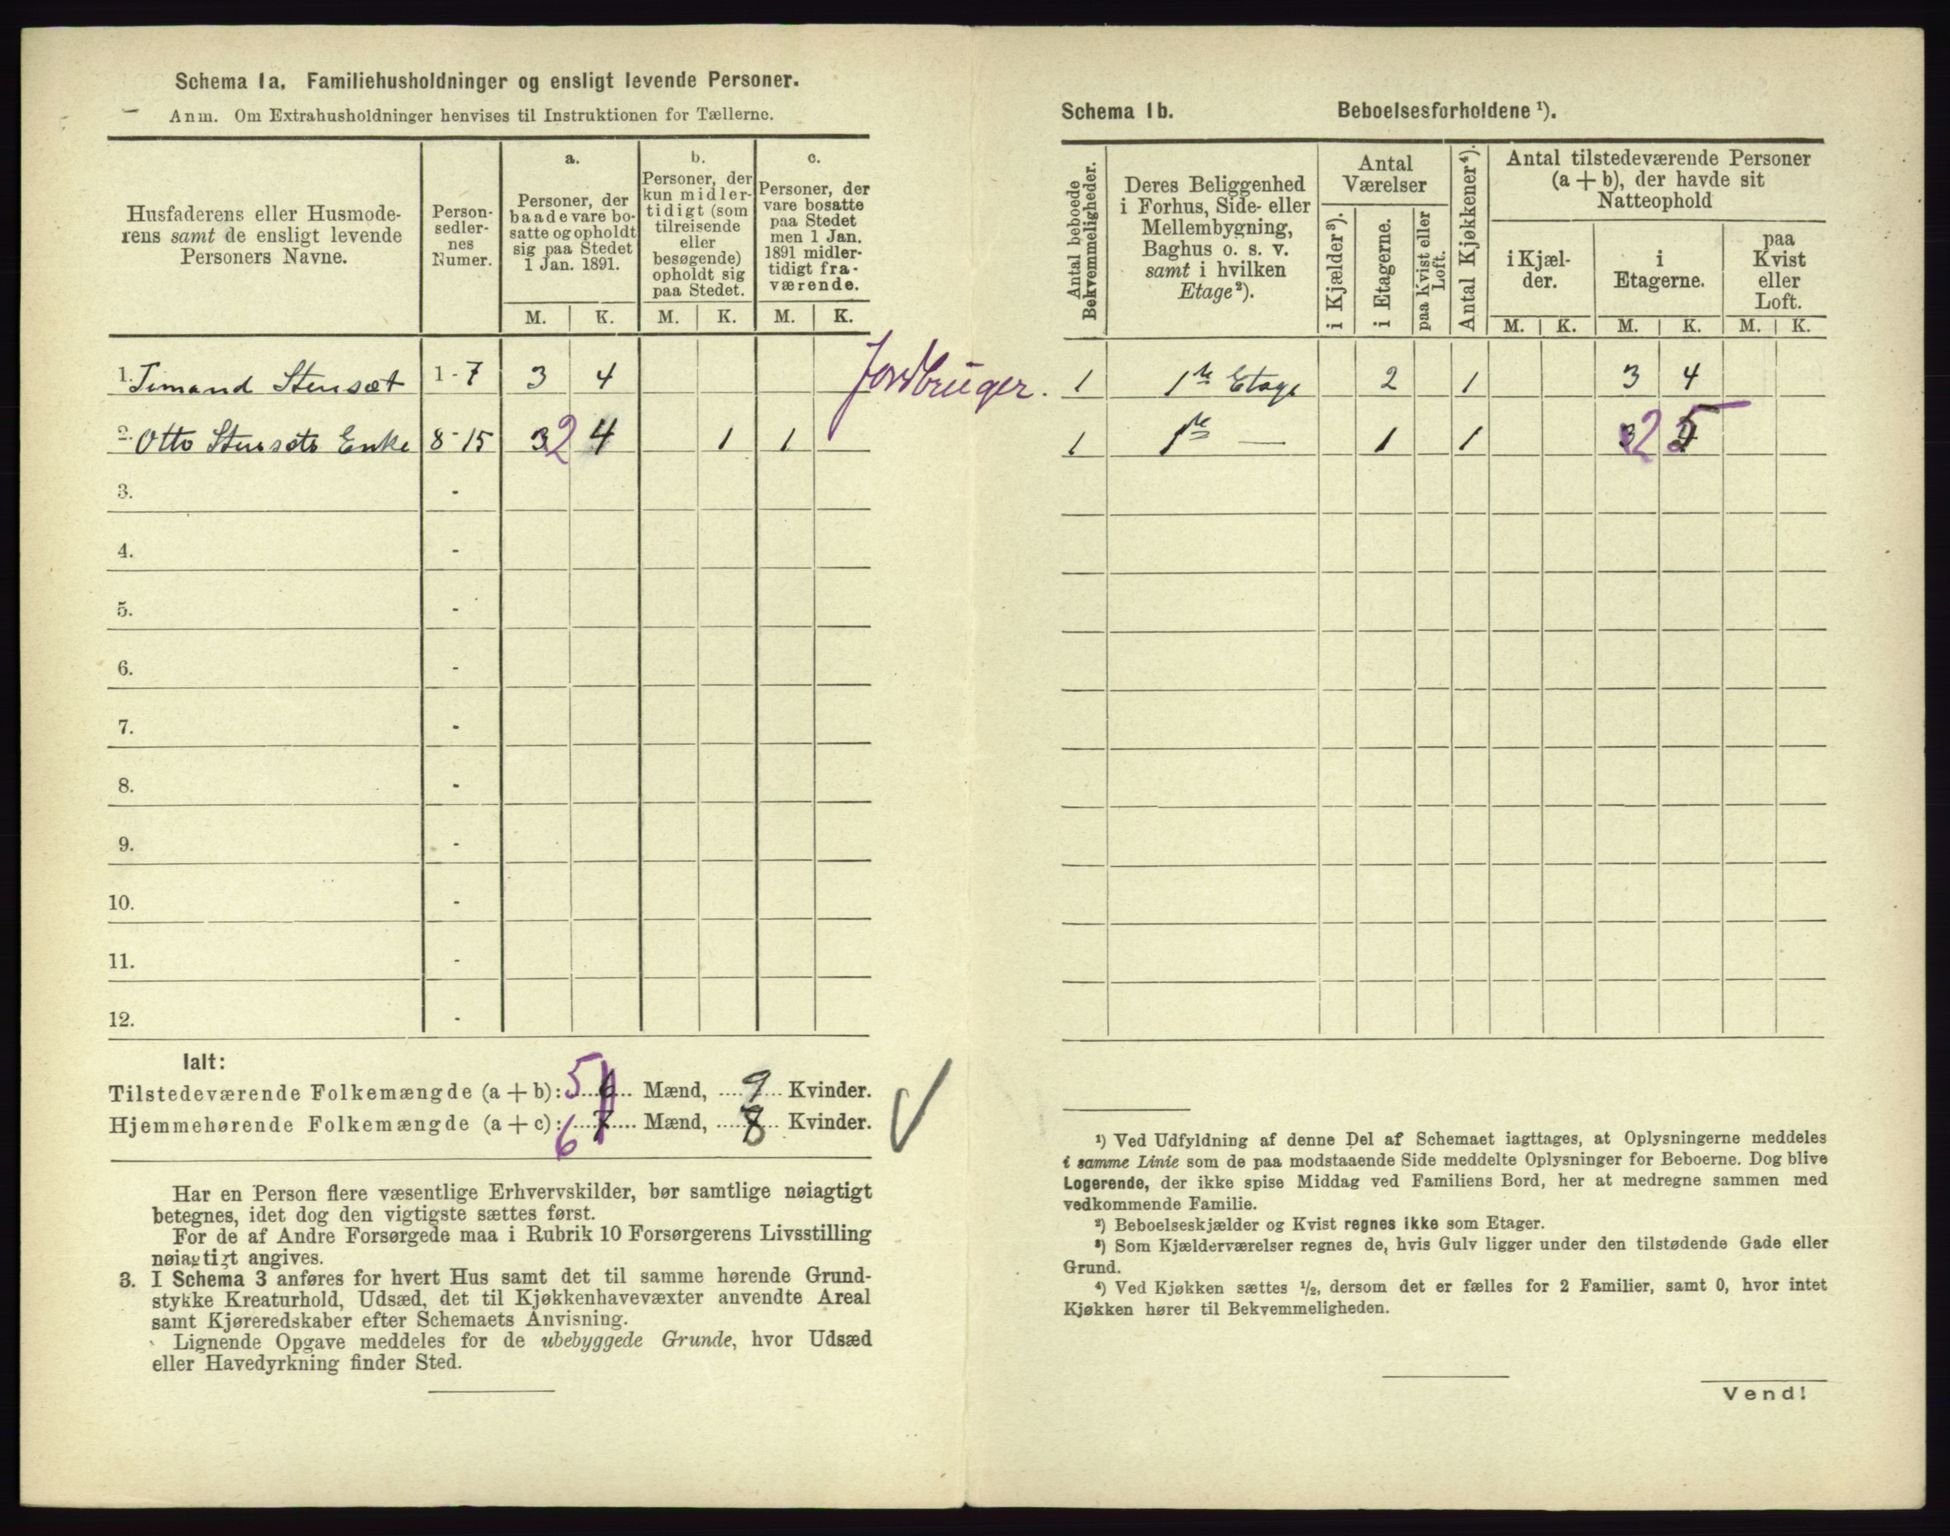 Schema 1a. Familiehusholdninger og ensligt levende Personer.
Anm. Om Extrahusholdninger henvises til Instruktionen for Tællerne.
Husfaderens eller Husmode-
rens samt de ensligt levende
Personers Navne.
Person-
sedler-
nes
Numer.
a.
Personer, der
baade vare bo-
satte og opholdt
sig paa Stedet
1 Jan. 1891.
b.
Personer, der
kun midler-
tidigt (som
tilreisende
eller
besøgende)
opholdt sig
paa Stedet.
c.
Personer, der
vare bosatte
paa Stedet
men 1 Jan.
1891 midler-
tidigt fra-
værende.
M. K. M. K. M. K.
1. Timand Stensæt 1 - 7 3 4 Jordbruger.
2. Otto Stensæts Enke 8 - 15 3 2 4 1 1
3. -
4. -
5. -
6. -
7. -
8. -
9. -
10. -
11. -
12. -
Ialt:
Tilstedeværende Folkemængde (a + b): 5 6 Mænd, 9 Kvinder.
Hjemmehørende Folkemængde (a + c): 6 7 Mænd, 8 Kvinder.
Har en Person flere væsentlige Erhvervskilder, bør samtlige nøiagtigt
betegnes, idet dog den vigtigste sættes først.
For de af Andre Forsørgede maa i Rubrik 10 Forsørgerens Livsstilling
nøiagtigt angives.
3. I Schema 3 anføres for hvert Hus samt det til samme hørende Grund-
stykke Kreaturhold, Udsæd, det til Kjøkkenhavevæxter anvendte Areal
samt Kjøreredskaber efter Schemaets Anvisning.
Lignende Opgave meddeles for de ubebyggede Grunde, hvor Udsæd
eller Havedyrkning finder Sted.
Schema 1b. Beboelsesforholdene ¹).
Antal beboede
Bekvemmeligheder.
Deres Beliggenhed
i Forhus, Side- eller
Mellembygning,
Baghus o. s. v.
samt i hvilken
Etage²).
Antal
Værelser
i Kjælder³).
i Etagerne.
paa Kvist eller
Loft.
Antal Kjøkkener⁴).
Antal tilstedeværende Personer
(a + b), der havde sit
Natteophold
i Kjæl-
der.
i
Etagerne.
paa
Kvist
eller
Loft.
M. K. M. K. M. K.
1 1ste Etage 2 1 3 4
1 1ste — 1 1 3 2 5
¹) Ved Udfyldning af denne Del af Schemaet iagttages, at Oplysningerne meddeles
i samme Linie som de paa modstaaende Side meddelte Oplysninger for Beboerne. Dog blive
Logerende, der ikke spise Middag ved Familiens Bord, her at medregne sammen med
vedkommende Familie.
²) Beboelseskjælder og Kvist regnes ikke som Etager.
³) Som Kjælderværelser regnes de, hvis Gulv ligger under den tilstødende Gade eller
Grund.
⁴) Ved Kjøkken sættes ½, dersom det er fælles for 2 Familier, samt 0, hvor intet
Kjøkken hører til Bekvemmeligheden.
Vend!